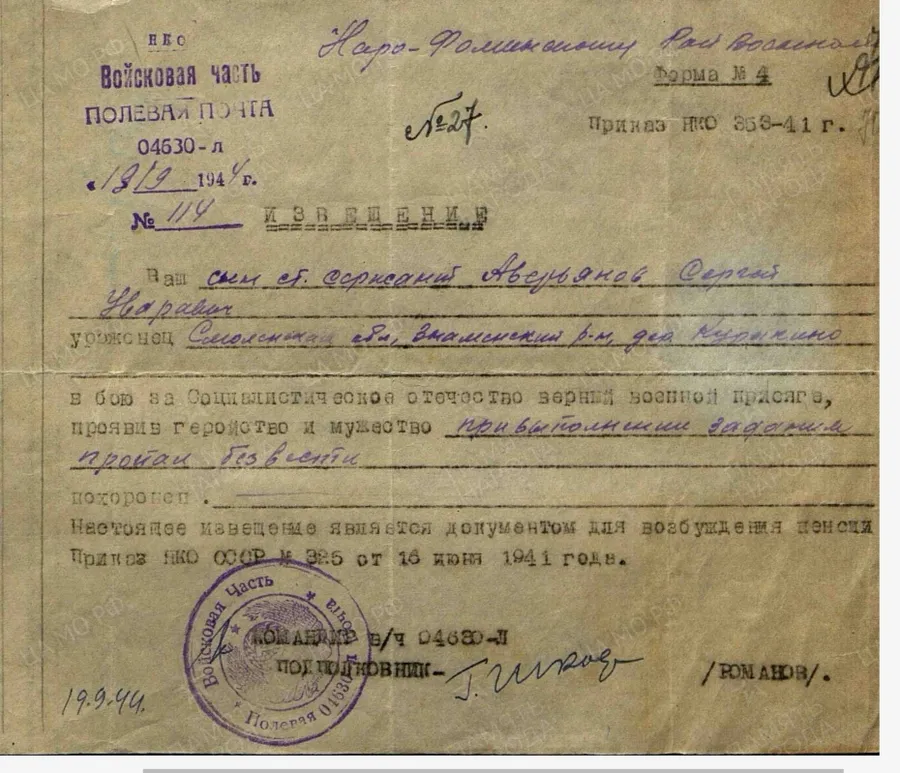 НКО
Войсковая часть
ПОЛЕВАЯ ПОЧТА
04630-л
"19/9 1944 г.
№ 114
Наро-Фоминскому Рай Военкому
Форма № 4
№27.
Приказ НКО 353-41 г.
ИЗВЕЩЕНИЕ
Ваш сын ст. сержант Аверьянов Сергей
уроженец Смоленская обл, Знаменский р-н, дер
в бою за Социалистическое отечество верный военной присяге,
проявив геройство и мужество при выполнении задания
пропал безвести
похоронен .
Настоящее извещение является документом для возбуждения пенсии
Приказ НКО СССР № 325 от 16 июня 1941 года.
КОМАНДИР в/ч 04630-Л
ПОДПОЛКОВНИК-
/РОМАНОВ/.
Войсковая Часть
Полевая почта 04630
19.9.44.